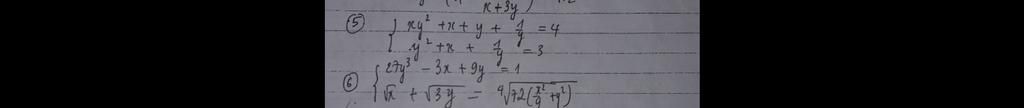 x+3y
⑤ { xy² + x + y + 1/y = 4
y² + x + 1/y = 3
⑥ { 27y³ - 3x + 9y = 1
√x + √3y = ⁴√72(x²/9 + y²)